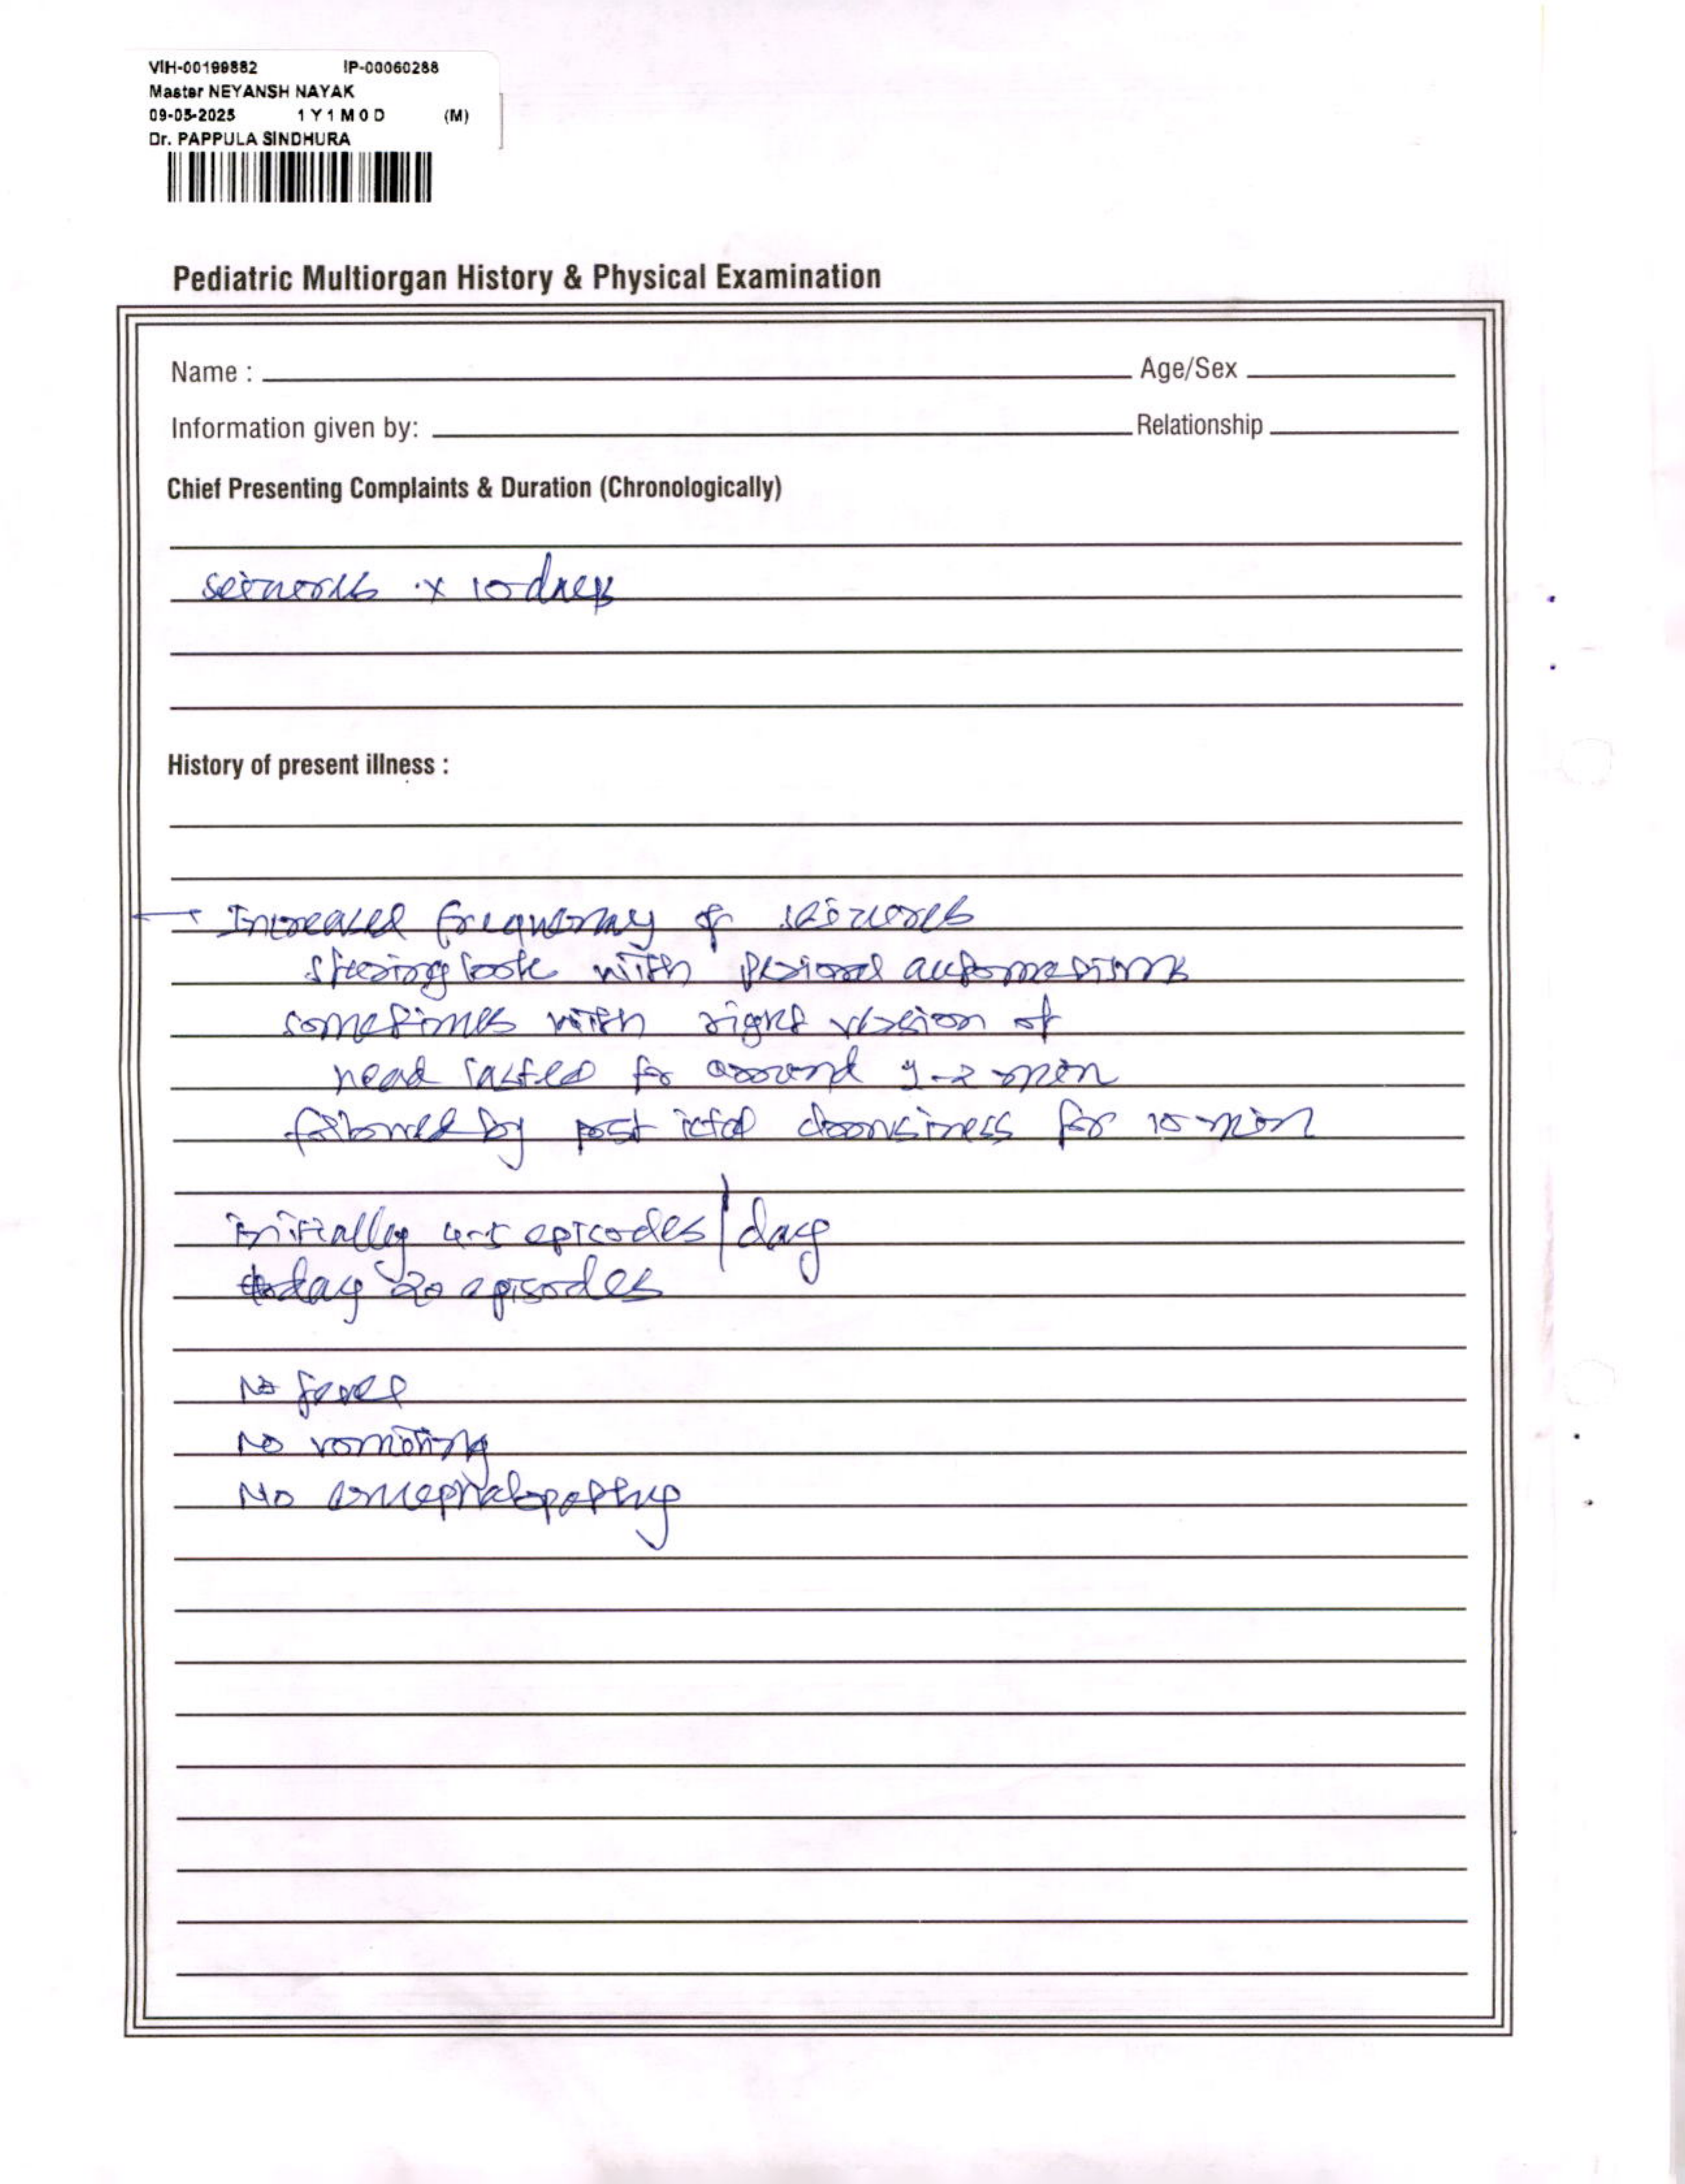 VIH-00199882 IP-00060288
Master NEYANSH NAYAK
09-05-2025 1Y1M0D (M)
Dr. PAPPULA SINDHURA
Pediatric Multiorgan History & Physical Examination
Name : Age/Sex
Information given by: Relationship
Chief Presenting Complaints & Duration (Chronologically)
seizures x 10 days
History of present illness :
→ Increased frequency of seizures
staring look with automatisms
sometimes with right version of
head lasted for around 1-2 min
followed by post ictal drowsiness for 10 min
initially 4-5 episodes/day
today 20 episodes
No fever
No vomiting
No encephalopathy